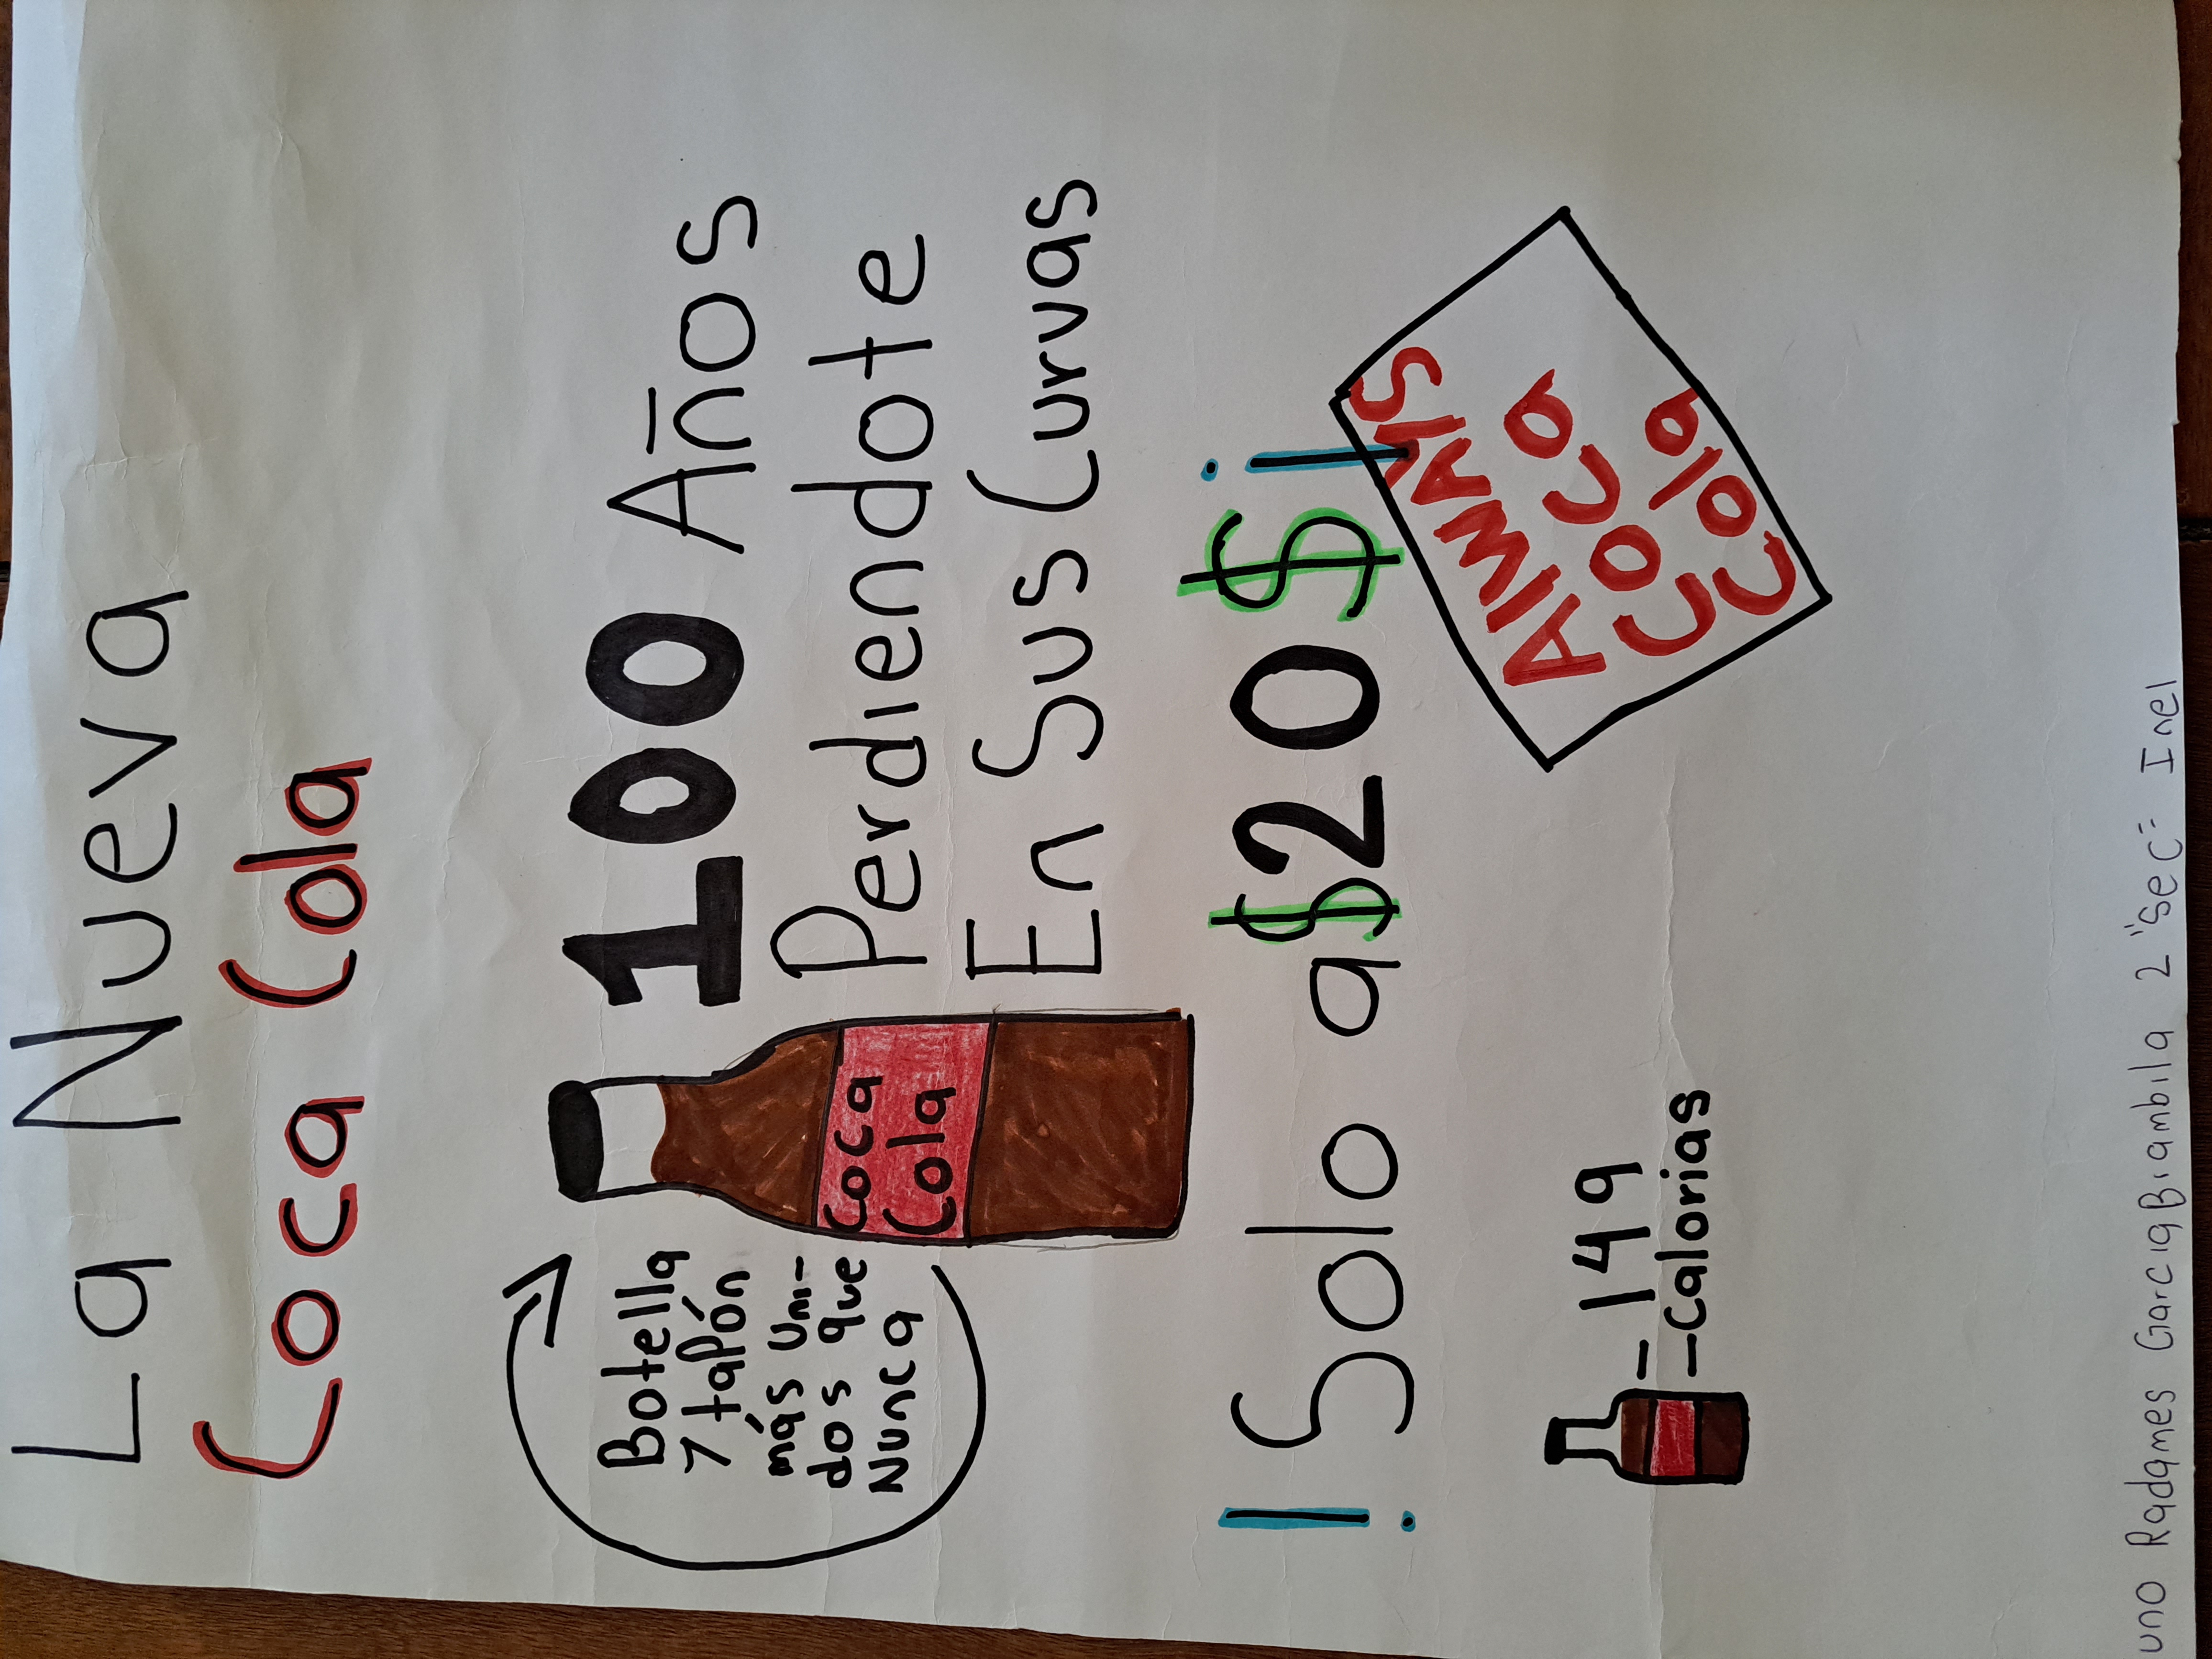 La Nueva
Coca Cola
100 Años
Perdiendote
En Sus Curvas
Botella
y tapón
más uni-
dos que
Nunca
Coca
Cola
! Solo a $20$ ¡
Always
Coca
Cola
= 149
-Calorias
uno Radames Garcia Briambila 2 "Sec" Inel